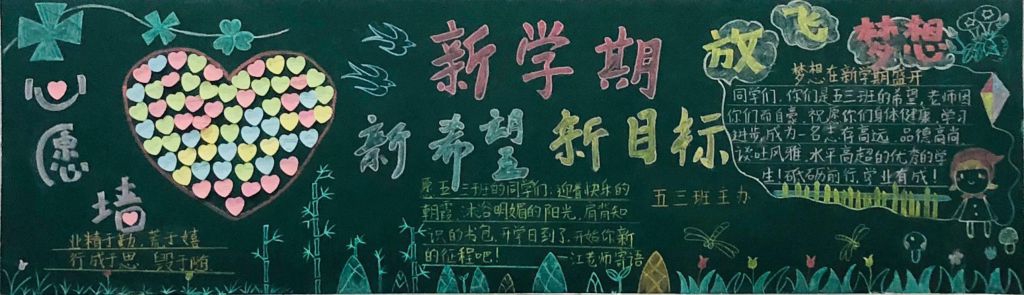 心愿墙
业精于勤,荒于嬉
行成于思,毁于随
新学期
新希望 新目标
愿五三班的同学们,迎着快乐的
朝霞,沐浴明媚的阳光,肩背知
识的书包,开学日到了,开始你新
的征程吧!——江老师寄语
五三班主办
放飞梦想
梦想在新学期盛开
同学们,你们是五三班的希望,老师因
你们而自豪,祝愿你们身体健康,学习
进步,成为一名志存高远,品德高尚
谈吐风雅,水平高超的优秀的学
生!砥砺前行,学业有成!